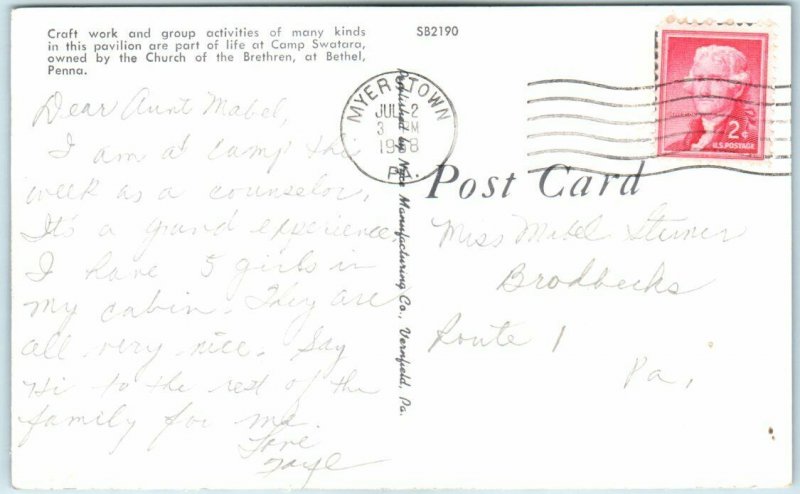 Craft work and group activities of many kinds
in this pavilion are part of life at Camp Swatara,
owned by the Church of the Brethren, at Bethel,
Penna.
SB2190
Dear Aunt Mabel,
I am at camp this
week as a counselor.
It's a grand experience.
I have 5 girls in
my cabin. They are
all very nice. Say
Hi to the rest of the
family for me.
Love
Faye
Published by Nyce Manufacturing Co., Vernfield, Pa.
MYERSTOWN
JUL 2
3 PM
PA.
2¢
U.S. POSTAGE
Post Card
Miss Mabel Sterner
Brodbecks
Route 1
Pa.